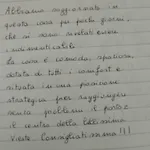 Abbiamo soggiornato in
questa casa per pochi giorni,
che si sono rivelati essere
indimenticabili.
La casa è comoda, spaziosa,
dotata di tutti i comfort e
situata in una posizione
strategica per raggiungere
senza problemi il porto e
il centro della bellissima
Vieste. Consigliatissimo!!!